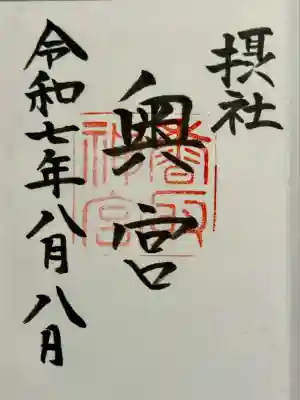 摂社
奥宮
香取
神宮
令和七年八月八日